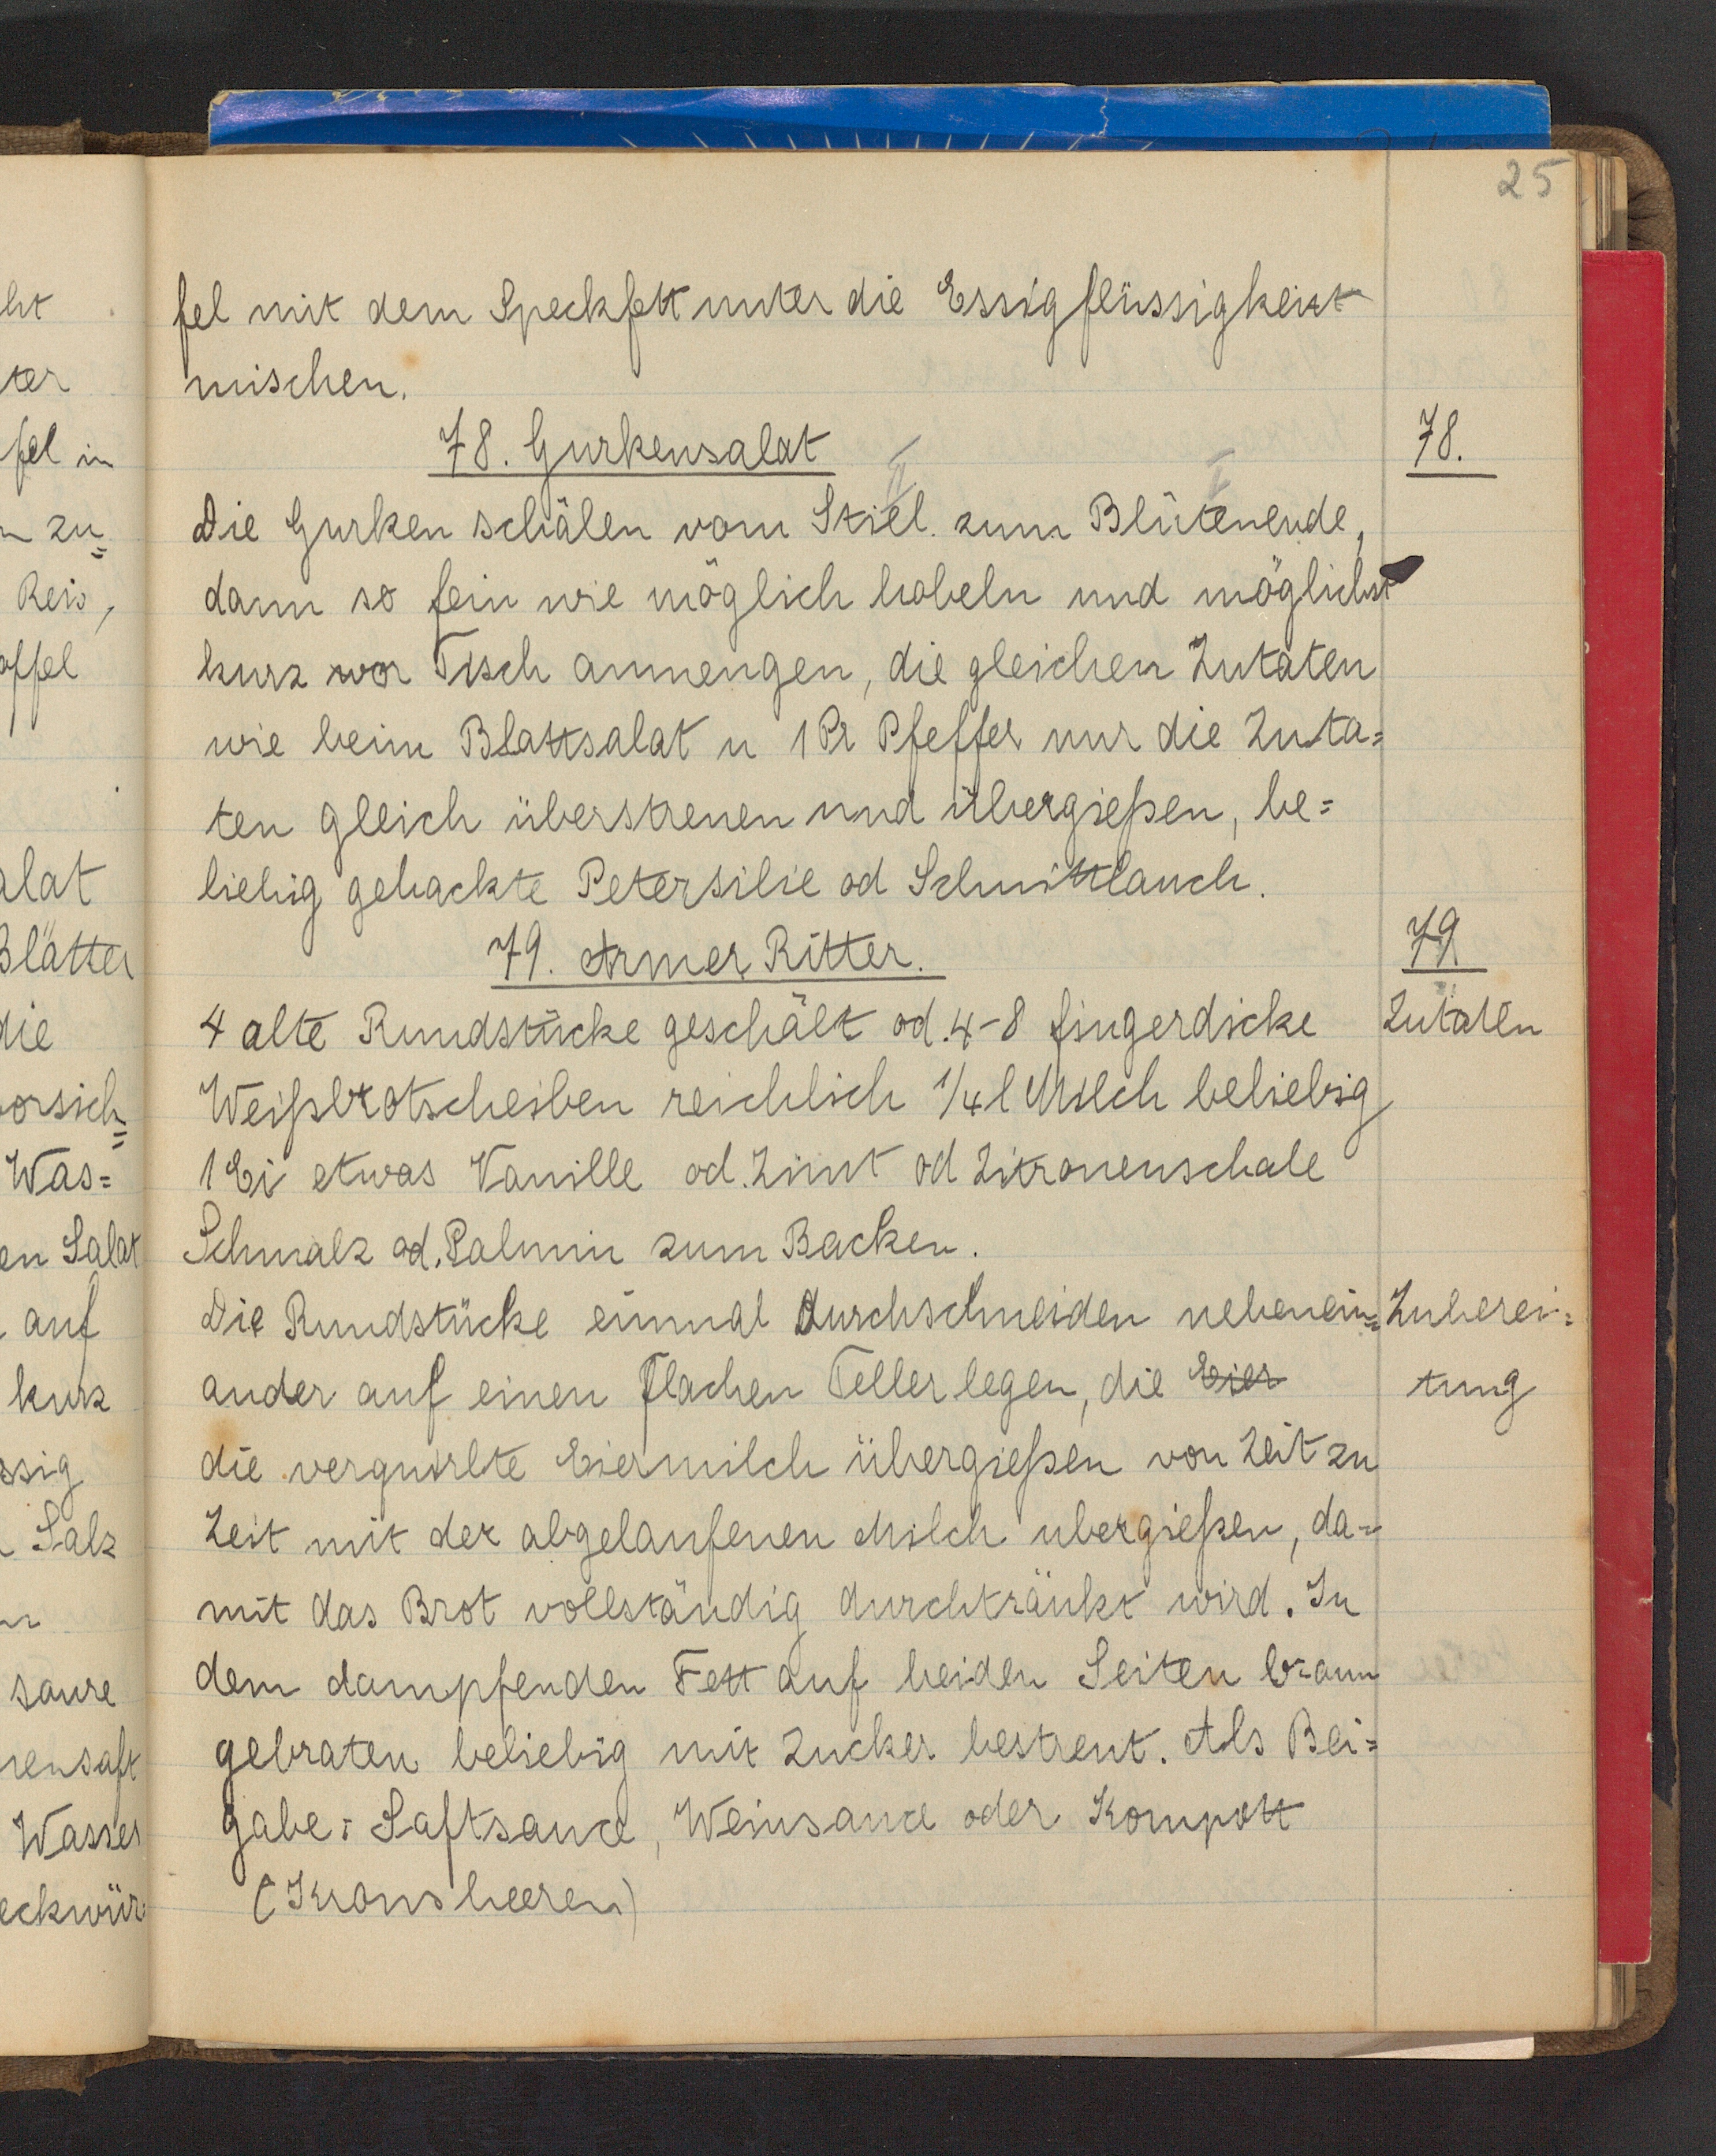 25
fel mit dem Speckfett unter die Essigflüssigkeit
mischen.
78. Gurkensalat
78.
II I
Die Gurken schälen vom Stiel zum Blütenende,
dann so fein wie möglich hobeln und möglichst
kurz vor Tisch anmengen, die gleichen Zutaten
wie beim Blattsalat u 1 Pr Pfeffer nur die Zuta=
ten gleich überstreuen und übergießen, be=
liebig gehackte Petersilie od Schnittlauch.
79. Armer Ritter.
79
4 alte Rundstücke geschält od. 4-8 fingerdicke
Zutaten
Weißbrotscheiben reichlich 1/4 l Milch beliebig
1 Ei etwas Vanille od. Zimt od Zitronenschale
Schmalz od. Palmin zum Backen.
Die Rundstücke einmal durchschneiden nebenein=
Zuberei=
ander auf einen flachen Teller legen, die Eier
tung
die verquirlte Eiermilch übergießen von Zeit zu
Zeit mit der abgelaufenen Milch ubergießen, da=
mit das Brot vollständig durchtränkt wird. In
dem dampfenden Fett auf beiden Seiten braun
gebraten beliebig mit Zucker bestreut. Als Bei=
gabe: Saftsauce, Weinsauce oder Kompott
(Kronsbeeren)
ter
fel in
n zu=
Reis,
offel
alat
Blätter
die
vorsich=
Was=
en Salat
auf
kurz
ssig
Salz
saure
nensaft
Wasser
eckwür